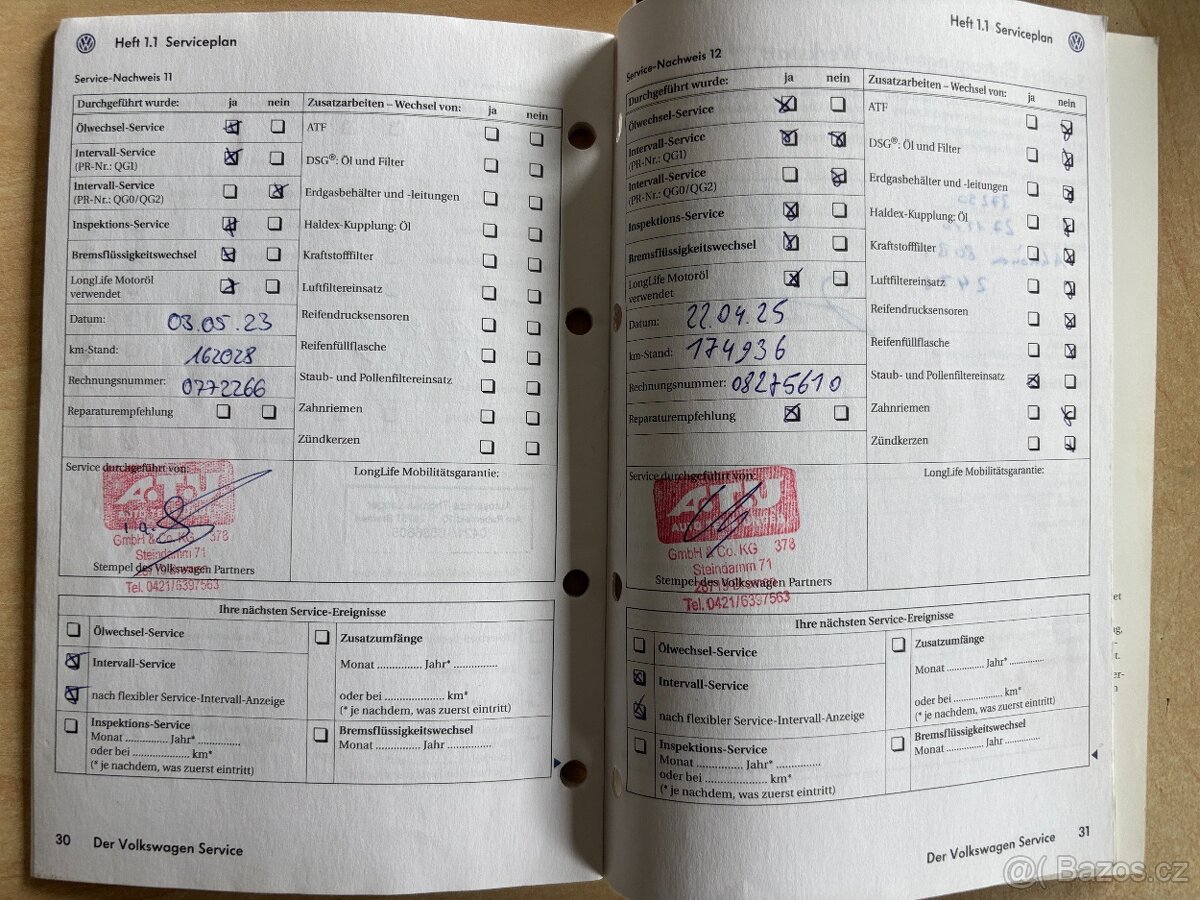 Heft 1.1 Serviceplan
Service-Nachweis 11
Durchgeführt wurde: ja nein
Ölwechsel-Service
Intervall-Service
(PR-Nr.: QG1)
Intervall-Service
(PR-Nr.: QG0/QG2)
Inspektions-Service
Bremsflüssigkeitswechsel
LongLife Motoröl
verwendet
Datum: 03.05.23
km-Stand: 162028
Rechnungsnummer: 0772266
Reparaturempfehlung
Zusatzarbeiten – Wechsel von: ja nein
ATF
DSG®: Öl und Filter
Erdgasbehälter und -leitungen
Haldex-Kupplung: Öl
Kraftstofffilter
Luftfiltereinsatz
Reifendrucksensoren
Reifenfüllflasche
Staub- und Pollenfiltereinsatz
Zahnriemen
Zündkerzen
Service durchgeführt von:
A.T.U
GmbH & Co. KG 378
Steindamm 71
Stempel des Volkswagen Partners
Tel. 0421/6397563
LongLife Mobilitätsgarantie:
Ihre nächsten Service-Ereignisse
Ölwechsel-Service
Intervall-Service
nach flexibler Service-Intervall-Anzeige
Inspektions-Service
Monat ............. Jahr* .............
oder bei .................. km*
(* je nachdem, was zuerst eintritt)
Zusatzumfänge
Monat ............. Jahr* .............
oder bei .................. km*
(* je nachdem, was zuerst eintritt)
Bremsflüssigkeitswechsel
Monat ............. Jahr .............
30 Der Volkswagen Service
Heft 1.1 Serviceplan
Service-Nachweis 12
Durchgeführt wurde: ja nein
Ölwechsel-Service
Intervall-Service
(PR-Nr.: QG1)
Intervall-Service
(PR-Nr.: QG0/QG2)
Inspektions-Service
Bremsflüssigkeitswechsel
LongLife Motoröl
verwendet
Datum: 22.04.25
km-Stand: 174936
Rechnungsnummer: 08275610
Reparaturempfehlung
Zusatzarbeiten – Wechsel von: ja nein
ATF
DSG®: Öl und Filter
Erdgasbehälter und -leitungen
Haldex-Kupplung: Öl
Kraftstofffilter
Luftfiltereinsatz
Reifendrucksensoren
Reifenfüllflasche
Staub- und Pollenfiltereinsatz
Zahnriemen
Zündkerzen
Service durchgeführt von:
A.T.U
GmbH & Co. KG 378
Steindamm 71
Stempel des Volkswagen Partners
Tel. 0421/6397563
LongLife Mobilitätsgarantie:
Ihre nächsten Service-Ereignisse
Ölwechsel-Service
Intervall-Service
nach flexibler Service-Intervall-Anzeige
Inspektions-Service
Monat ............. Jahr* .............
oder bei .................. km*
(* je nachdem, was zuerst eintritt)
Zusatzumfänge
Monat ............. Jahr* .............
oder bei .................. km*
(* je nachdem, was zuerst eintritt)
Bremsflüssigkeitswechsel
Monat ............. Jahr .............
Der Volkswagen Service 31
@( Bazos.cz